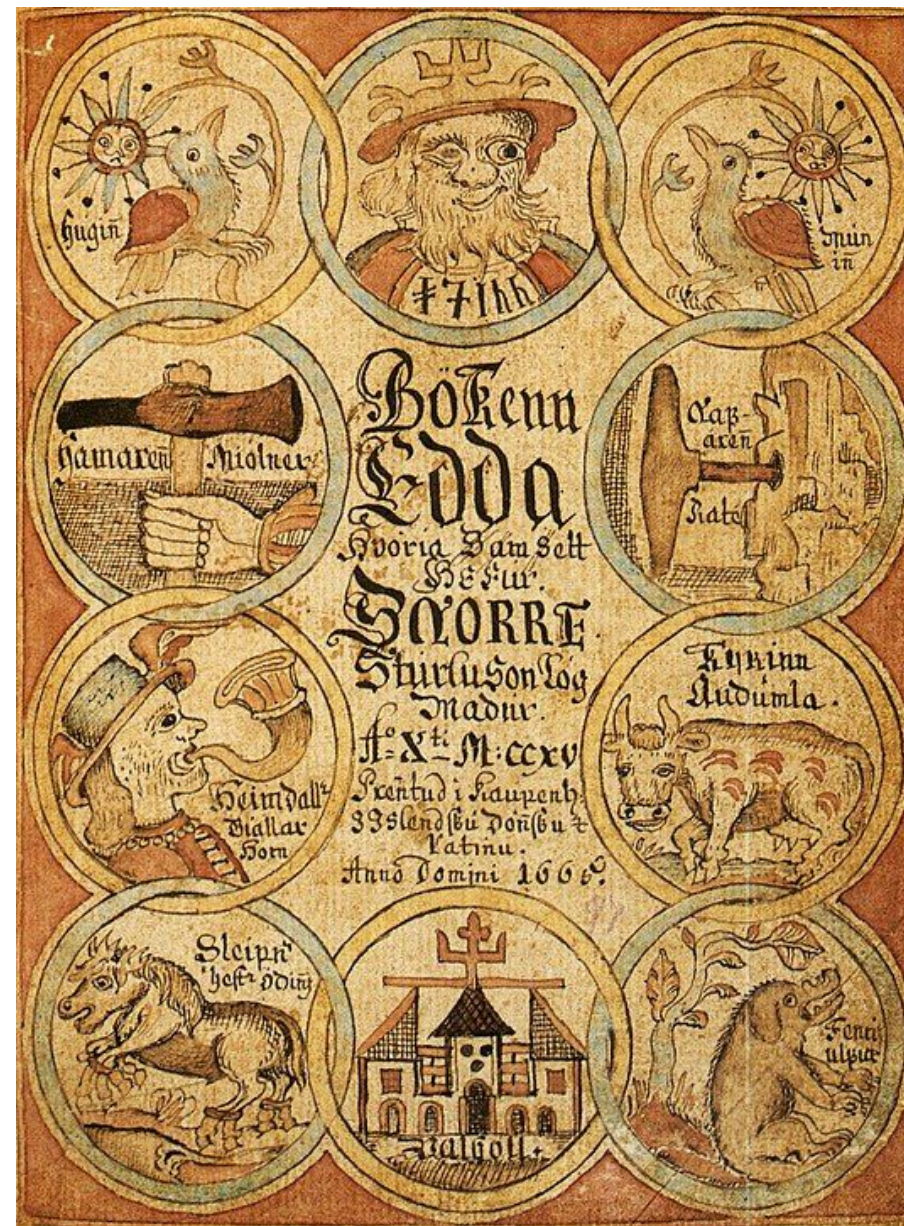 Hugiñ
Mun
iñ
Hamareñ Miolner
Naß-
areñ
Rate
Bökenn
Edda
Hvoria Samsett
Hefur.
SNORRE
Sturluson Lög
Madur.
Aº Xti M:ccxv
Preñtud i Kaupenh:
Jslendsku Doñsku
Latinu.
Anno Domini 1665
Heimdallr
Giallar
Horn
Kyrinn
Audumla.
Sleipn
hestr Odins
Valholl.
Fenris
ulfur